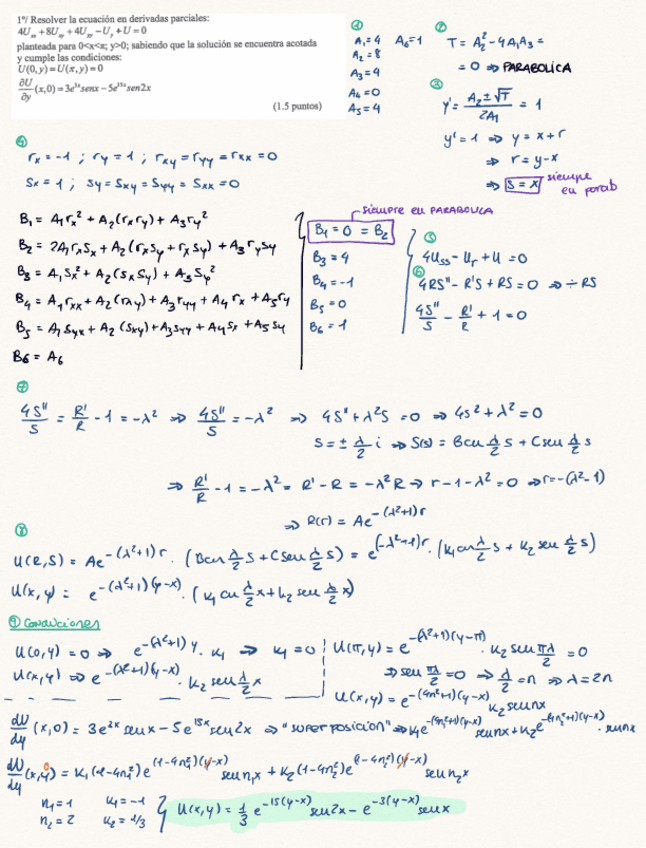 1º/ Resolver la ecuación en derivadas parciales:
4Uₓₓ+8Uₓᵧ+4Uᵧᵧ-Uᵧ+U=0
planteada para 0<x<π; y>0; sabiendo que la solución se encuentra acotada
y cumple las condiciones:
U(0,y)=U(π,y)=0
∂U/∂y (x,0)=3e³ˣsenx-5e¹⁵ˣsen2x
(1.5 puntos)
①
A₁=4 A₆=1
A₂=8
A₃=4
A₄=0
A₅=4
②
T = A₂² - 4A₁A₃ =
= 0 ⇒ PARABOLICA
③
y' = (A₂ ± √T)/2A₁ = 1
y' = 1 ⇒ y = x + r
⇒ r = y-x
⇒ s = x siempre en parab
④
rx = -1 ; ry = 1 ; rxy = ryy = rxx = 0
sx = 1 ; sy = sxy = syy = sxx = 0
B₁ = A₁rx² + A₂(rx ry) + A₃ry²
B₂ = 2A₁rx sx + A₂(rx sy + ry sx) + A₃ ry sy
B₃ = A₁sx² + A₂(sx sy) + A₃sy²
B₄ = A₁rxx + A₂(rxy) + A₃ryy + A₄rx + A₅ry
B₅ = A₁sxx + A₂(sxy) + A₃syy + A₄sx + A₅sy
B₆ = A₆
siempre en PARABOLICA
B₁ = 0 = B₂
B₃ = 4
B₄ = -1
B₅ = 0
B₆ = 1
⑤
4Uss - Ur + U = 0
⑥
4RS'' - R'S + RS = 0 ⇒ ÷ RS
4S''/S - R'/R + 1 = 0
⑦
4S''/S = R'/R - 1 = -λ² ⇒ 4S''/S = -λ² ⇒ 4S'' + λ²S = 0 ⇒ 4s² + λ² = 0
s = ± λ/2 i ⇒ S(s) = B cos λ/2 s + C sen λ/2 s
⇒ R'/R - 1 = -λ² = R' - R = -λ²R ⇒ r - 1 - λ² = 0 ⇒ r = -(λ²-1)
⇒ R(r) = Ae^-(λ²+1)r
⑧
U(R,S) = Ae^-(λ²+1)r · (B cos λ/2 s + C sen λ/2 s) = e^(-λ²+1)r · (k₁ cos λ/2 s + k₂ sen λ/2 s)
U(x,y) = e^-(λ²+1)(y-x) · (k₁ cos λ/2 x + k₂ sen λ/2 x)
⑨ Condiciones
U(0,y) = 0 ⇒ e^-(λ²+1)y · k₁ ⇒ k₁ = 0
U(x,y) ⇒ e^-(λ²+1)(y-x) · k₂ sen λ/2 x
U(π,y) = e^-(λ²+1)(y-π) · k₂ sen πλ/2 = 0
⇒ sen πλ/2 = 0 ⇒ λ/2 = n ⇒ λ = 2n
U(x,y) = e^-(4n²+1)(y-x) k₂ sen nx
dU/dy (x,0) = 3e²ˣ sen x - 5e¹⁵ˣ sen 2x ⇒ "superposicion" ⇒ k₁e^-(4n²+1)(y-x) sen nx + k₂e^-(4n²+1)(y-x) · sen nx
dU/dy (x,0) = k₁(1-4n₁²)e^(1-4n₁²)(y-x) sen n₁x + k₂(1-4n₂²)e^(1-4n₂²)(y-x) sen n₂x
n₁ = 1 k₁ = -1
n₂ = 2 k₂ = 1/3
U(x,y) = 1/3 e^-15(y-x) sen 2x - e^-3(y-x) sen x